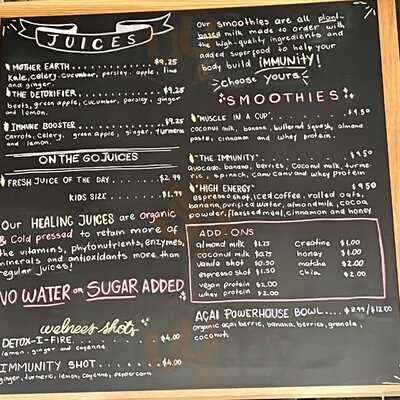 JUICES
MOTHER EARTH........... $9.25
Kale, celery, cucumber, parsley, apple, lime
and ginger.
THE DETOXIFIER......... $9.25
beets, green apple, cucumber, parsley, ginger
and lemon.
IMMUNE BOOSTER......... $9.25
Carrots, celery, green apple, ginger, turmeric
and lemon.
ON THE GO JUICES
FRESH JUICE OF THE DAY ....... $2.99
KIDS SIZE ....... $1.99
OUR HEALING JUICES are organic
& Cold pressed to retain more of
the vitamins, phytonutrients, enzymes,
minerals and antioxidants more than
regular juices!
NO WATER or SUGAR ADDED
welness shots
DETOX-I-FIRE............ $4.00
lemon, ginger and cayenne
IMMUNITY SHOT........... $4.00
ginger, turmeric, lemon, cayenne, peppercorn
Our smoothies are all plant-
based milk made to order with
the high-quality ingredients and
added superfood to help your
body build IMMUNITY!
choose yours
SMOOTHIES
"MUSCLE IN A CUP"........ $9.50
coconut milk, banana, butternut squash, almond
paste, cinnamon and whey protein.
"THE IMMUNITY" $9.50
avocado, banana, berries, coconut milk, turme-
ric, spinach, and whey protein
"HIGH ENERGY" $9.50
espresso shot, iced coffee, rolled oats,
banana, purified water, almond milk, cocoa
powder, flaxseed meal, cinnamon and honey
ADD-ONS
almond milk $1.25 creatine $1.00
coconut milk honey $1.00
vanilla shot $0.50 matcha $2.00
espresso shot $1.50 chia $2.00
vegan protein $2.00
whey protein $2.00
AÇAI POWERHOUSE BOWL.... $8.99/$12.00
organic açai berrie, banana, berries, granola,
coconut